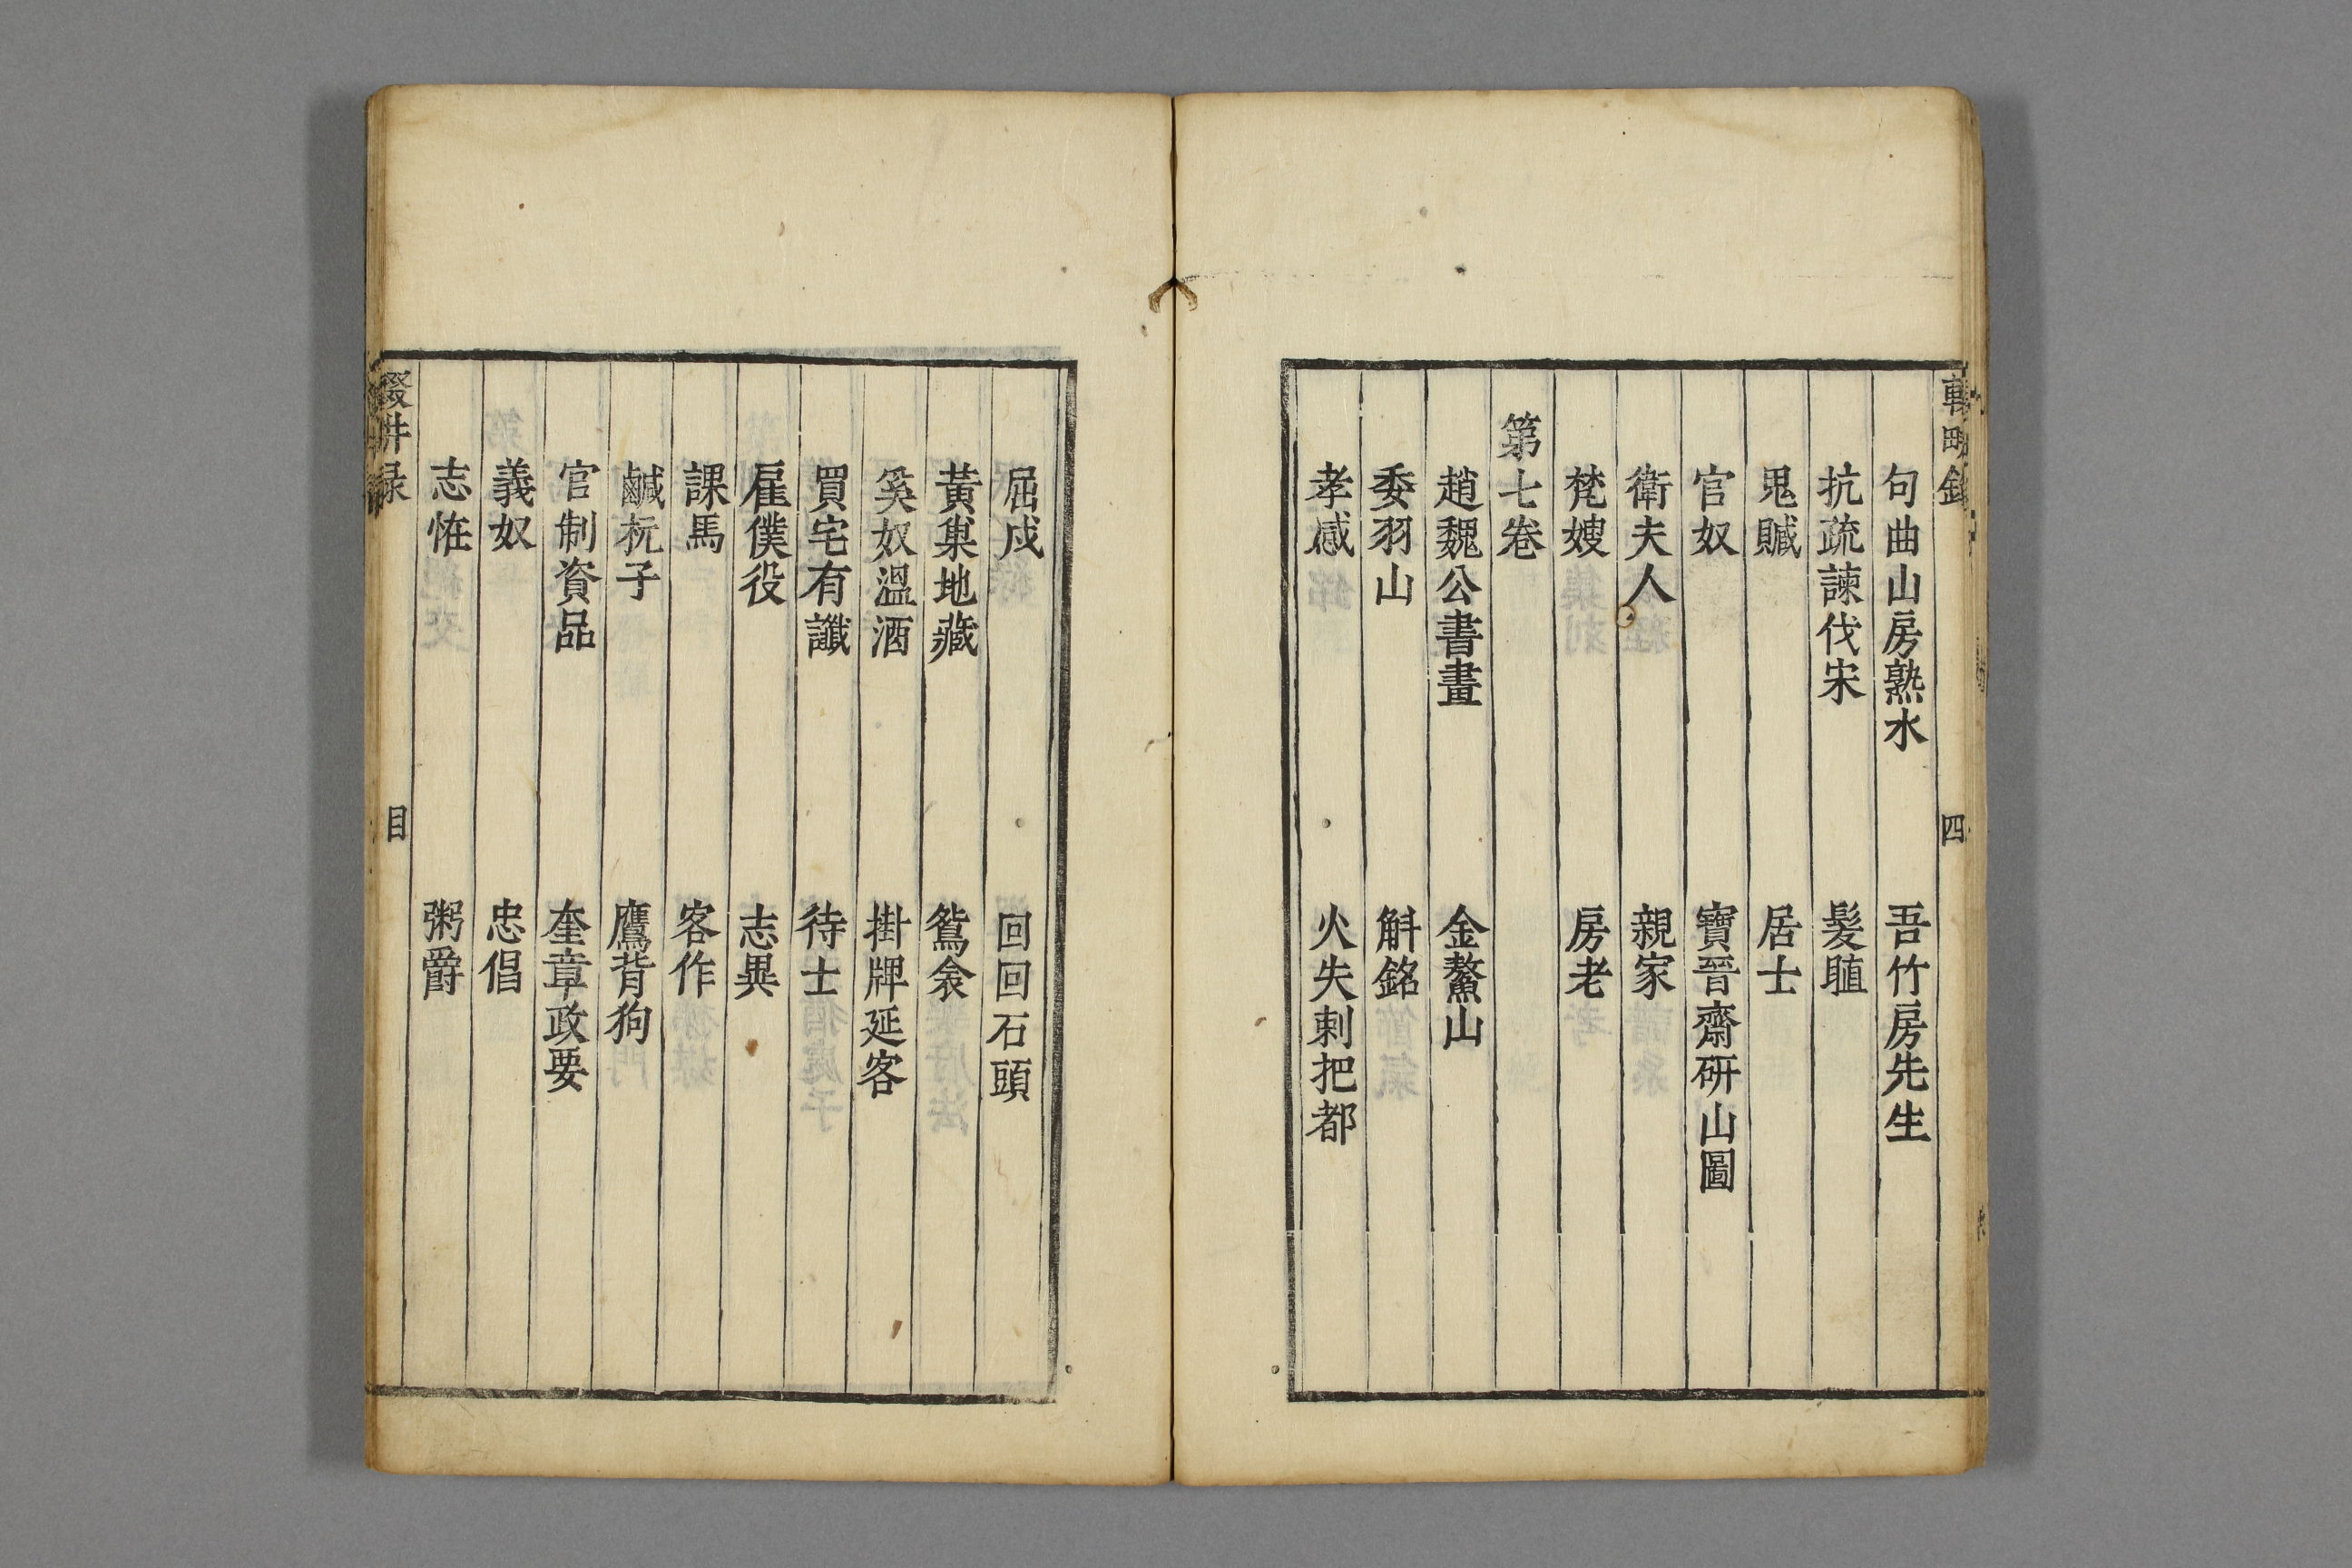 句曲山房熟水　吾竹房先生
抗疏諫伐宋　髮䐈
鬼贓　居士
官奴　寶晉齋硏山圖
衛夫人　親家
梵嫂　房老
第七卷
趙魏公書畫　金鰲山
委羽山　斛銘
孝感　火失刺把都
四
屈戍　回回石頭
黃巢地藏　鴛衾
奚奴溫酒　掛牌延客
買宅有讖　待士
雇僕役　志異
課馬　客作
鹹杬子　鷹背狗
官制資品　奎章政要
義奴　忠倡
志恠　粥爵
目